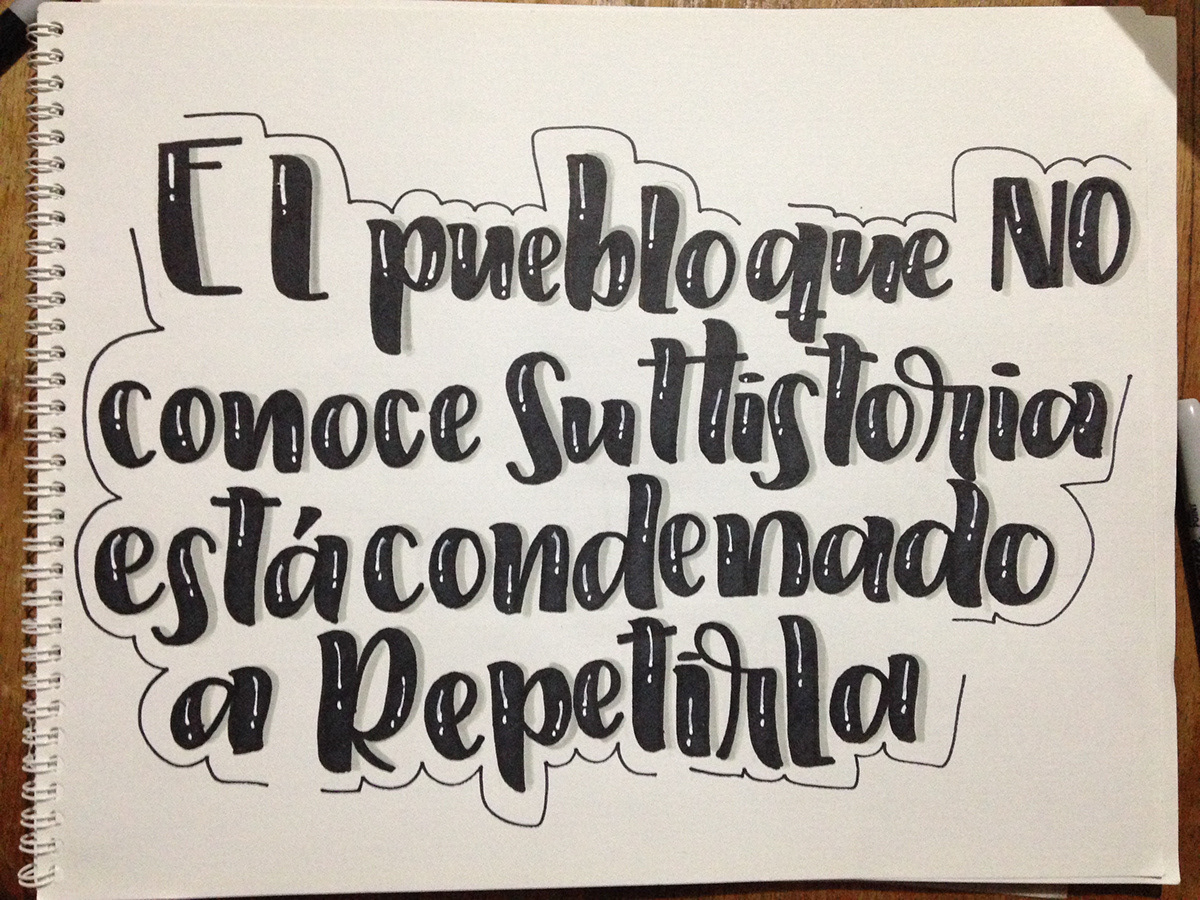 El pueblo que NO
conoce su Historia
está condenado
a Repetirla